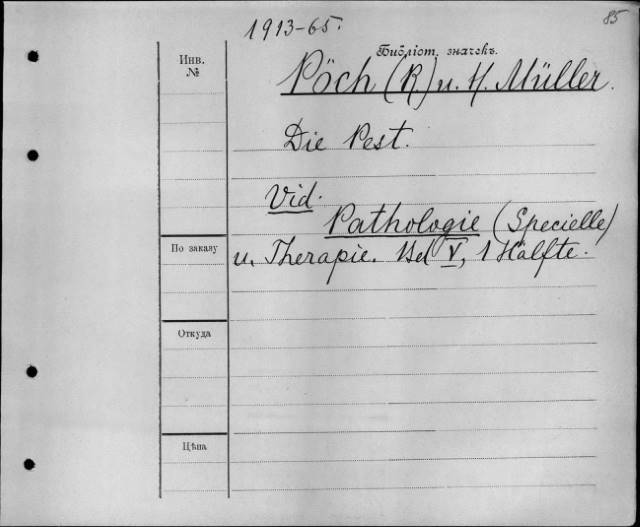 85
1913-65.
Библіот. значекъ.
Инв.
№
Pöch (R) u. H. Müller.
Die Pest.
Vid.
Pathologie (Specielle)
По заказу
u. Therapie. Bd V, 1 Hälfte.
Откуда
Цѣна